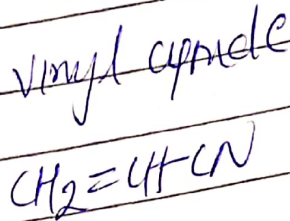 vinyl cyanide
CH2=CH-CN